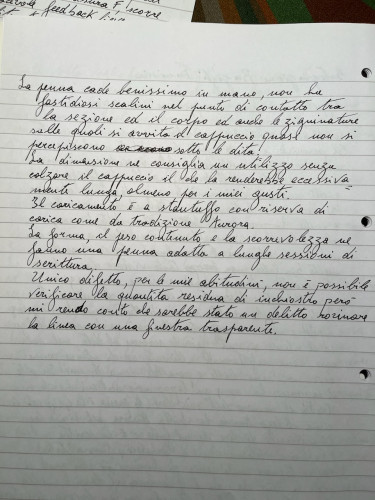 feedback
La penna cade benissimo in mano, non ha
fastidiosi scalini nel punto di contatto tra
la sezione ed il corpo ed anche le zigrinature
sulle quali si avvita il cappuccio quasi non si
percepiscono sotto le dita.
La dimensione ne consiglia un utilizzo senza
calzare il cappuccio il che la renderebbe eccessiva=
mente lunga, almeno per i miei gusti.
Il caricamento è a stantuffo con riserva di
carica come da tradizione Aurora.
La forma, il peso contenuto e la scorrevolezza ne
fanno una penna adatta a lunghe sessioni di
scrittura.
Unico difetto, per le mie abitudini, non è possibile
verificare la quantità residua di inchiostro però
mi rendo conto che sarebbe stato un delitto rovinare
la linea con una finestra trasparente.